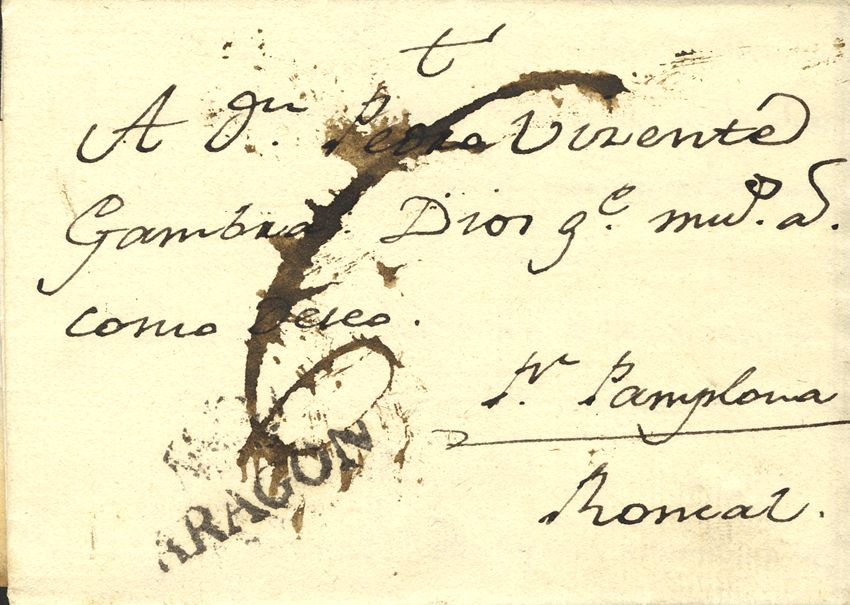 A Dn. Pedro Vizente
Gambra. Dios ge. mus. as.
como deseo.
Pr. Pamplona
Roncal.
ARAGON